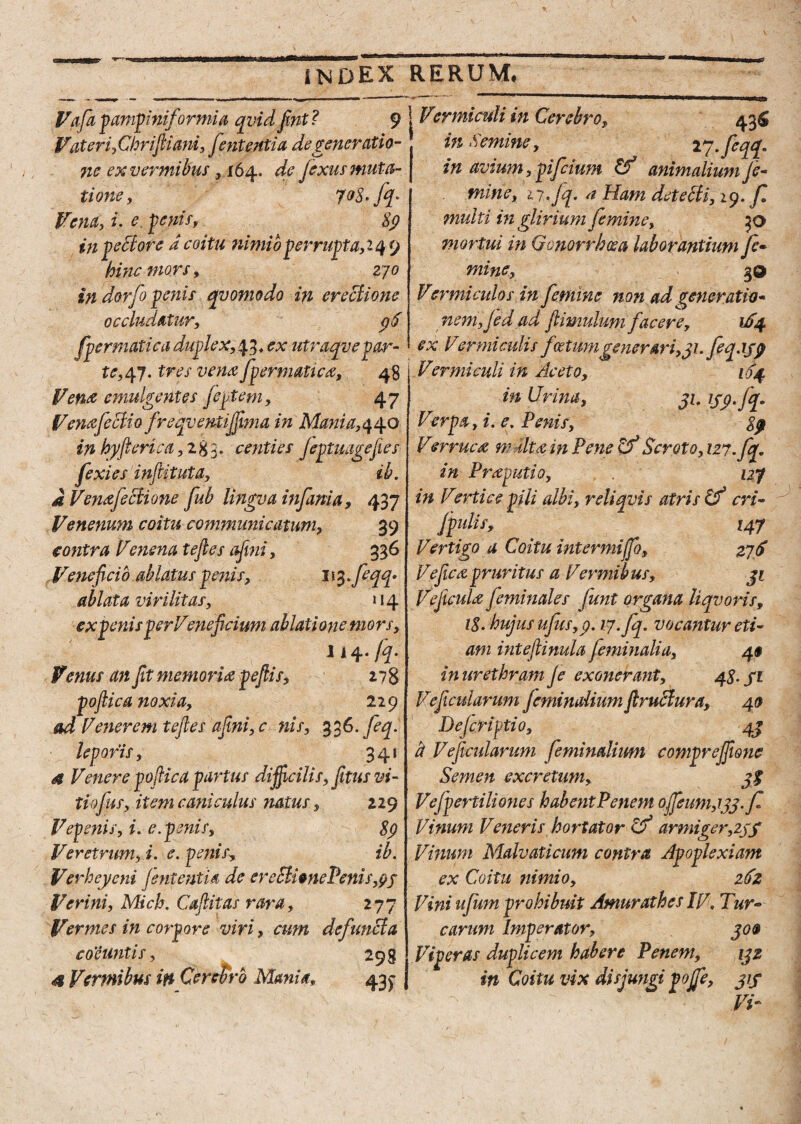 INDEX RERUM.
Vasa pampiniformia qvid sint? 9
Vateri, Christiani, sententia de generatio-
ne ex vermibus, 164. de sexus muta-
tione, 708. sq.
Vena, i. e. penis, 89
in pectore à coitu nimiò perrupta, 249
hinc mors, 270
in dorso penis qvomodo in erectione
occludatur, 96
spermatica duplex, 43. ex utraqve par-
te, 47. tres venæ spermaticæ, 48
Venæ emulgentes septem, 47
Venæsectio freqventissima in Mania, 440
in hysterica, 283. centies septuagesies
sexies instituta, ib.
à Venæsectione sub lingva insania, 437
Venenum coitu communicatum, 39
contra Venena testes asini, 336
Veneficiò ablatus penis, 113. seqq.
ablata virilitas, 114
ex penis per Veneficium ablatione mors,
114. sq.
Venus an sit memoriæ pestis, 278
postica noxia, 229
ad Venerem testes asini, c nis, 336. seq.
leporis, 341
a Venere postica partus difficilis, situs vi-
tiosus, item caniculus natus, 229
Vepenis, i. e. penis, 89
Veretrum, i. e. penis, ib.
Verheyeni sententia de erectione Penis, 95
Verini, Mich. Castitas rara, 277
Vermes in corpore viri, cum defuncta
coëuntis, 298
a Vermibus in Cerebrò Mania, 435
Vermiculi in Cerebro, 436
in Semine, 27. seqq.
in avium, piscium & animalium se-
mine, 27. sq. a Ham detecti, 29. s.
multi in glirium semine, 30
mortui in Gonorrhœa laborantium se-
mine, 30
Vermiculos in semine non ad generatio-
nem, sed ad stimulum facere, 164
ex Vermiculis fœtum generari, 31. seq. 159
Vermiculi in Aceto, 164
in Urina, 31. 159. sq.
Verpa, i. e. Penis, 89
Verrucæ multæ in Pene & Scroto, 127. sq.
in Præputio, 127
in Vertice pili albi, reliqvis atris & cri-
spulis, 147
Vertigo a Coitu intermisso, 276
Vesicæ pruritus a Vermibus, 31
Vesiculæ seminales sunt organa liqvoris,
18. hujus usus, 9. 17. sq. vocantur eti-
am intestinula seminalia, 40
in urethram se exonerant, 48. 51
Vesicularum seminalium structura, 40
Descriptio, 43
à Vesicularum seminalium compressione
Semen excretum, 38
Vespertiliones habent Penem osseum, 133. s.
Vinum Veneris hortator & armiger, 255
Vinum Malvaticum contra Apoplexiam
ex Coitu nimio, 262
Vini usum prohibuit Amurathes IV. Tur-
carum Imperator, 300
Viperas duplicem habere Penem, 132
in Coitu vix disjungi posse, 315
Vi-